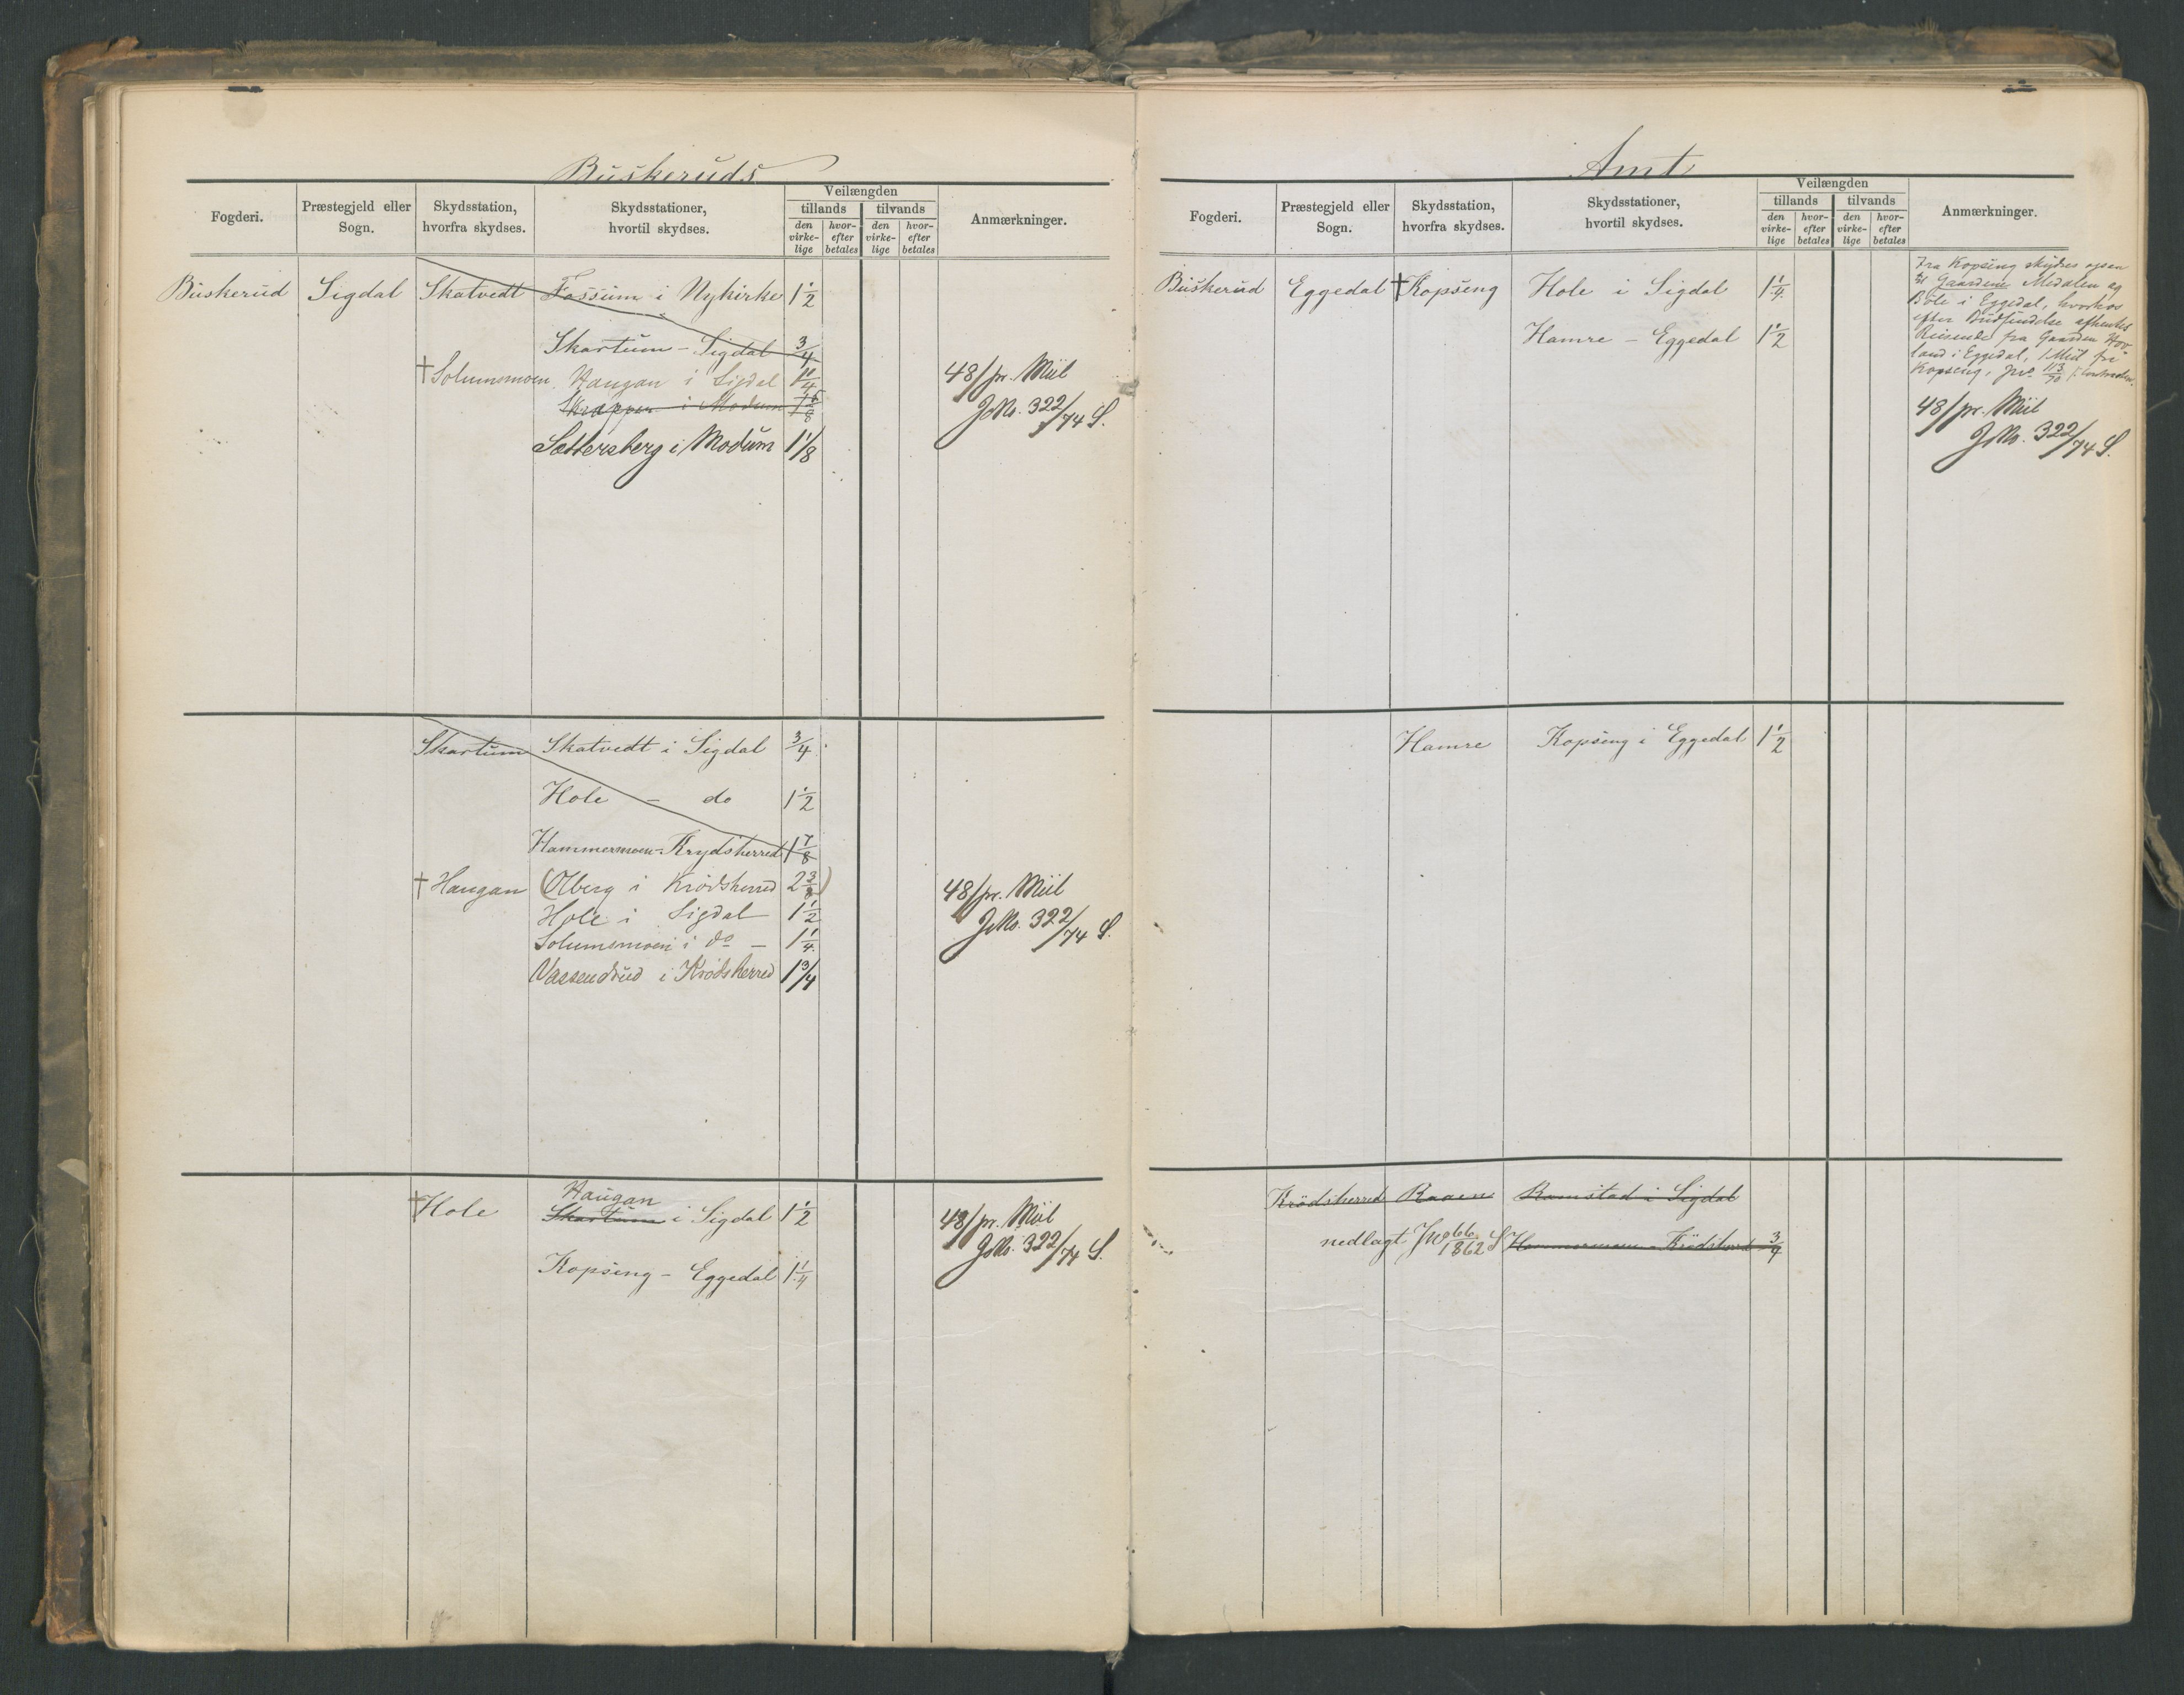 Buskeruds
Fogderi. Præstegjeld eller Sogn. Skydsstation, hvorfra skydses. Skydsstationer, hvortil skydses. Veilængden tillands tilvands den virke-lige hvor-efter betales den virke-lige hvor-efter betales Anmærkninger.
Buskerud Sigdal Skatvedt Fossum i Nykirke 1 1/2
Skartum - Sigdal 3/4
†Solumsmoen Haugan i Sigdal 1 1/4 48/ pr. Miil
i Modum JNo. 322/74 S.
Sættersberg i Modum 1 1/8
Skartum Skatvedt i Sigdal 3/4
Hole - do 1 1/2
Hammermoen - Krydsherred 1 7/8
†Haugan (Olberg i Krødsherred 2 3/8) 48/ pr. Miil
Hole i Sigdal 1 1/2 JNo. 322/74 S.
Solumsmoen i do - 1 1/4
Vassendrud i Krødsherred 1 3/4
Haugan
†Hole Skartum i Sigdal 1 1/2 48/ pr. Miil
JNo. 322/74 S.
Kopseng - Eggedal 1 1/4
Amt
Fogderi. Præstegjeld eller Sogn. Skydsstation, hvorfra skydses. Skydsstationer, hvortil skydses. Veilængden tillands tilvands den virke-lige hvor-efter betales den virke-lige hvor-efter betales Anmærkninger.
Buskerud Eggedal †Kopseng Hole i Sigdal 1 1/4
Hamre - Eggedal 1 1/2
Fra Kopseng skydses ogsaa
til Gaardene Medalen og
Bøle i Eggedal, hvorhos
efter Budsendelse afhentes
Reisende fra Gaarden Hov-
land i Eggedal, 1 Miil fra
Kopseng, JNo 113/70
48/ pr. Miil
JNo. 322/74 S.
Hamre Kopseng i Eggedal 1 1/2
Krödsherred Raaen Ramstad i Sigdal
nedlagt JNo 1862 S Hammermoen - Krödsherred 3/4